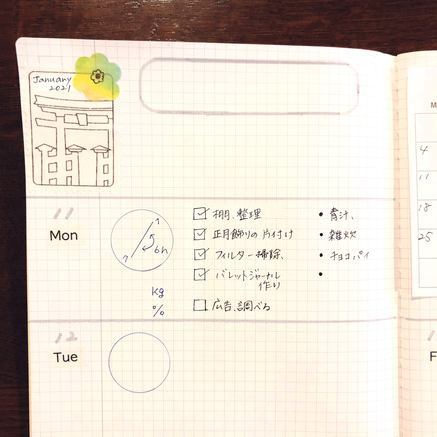 January
2021
11
Mon
7
1
6h
kg
%
棚、整理
正月飾りの片付け
フィルター掃除、
バレットジャーナル
作り
広告、調べる
• 青汁、
• 雑炊
• チョコパイ
•
12
Tue
M
4
11
18
25
F